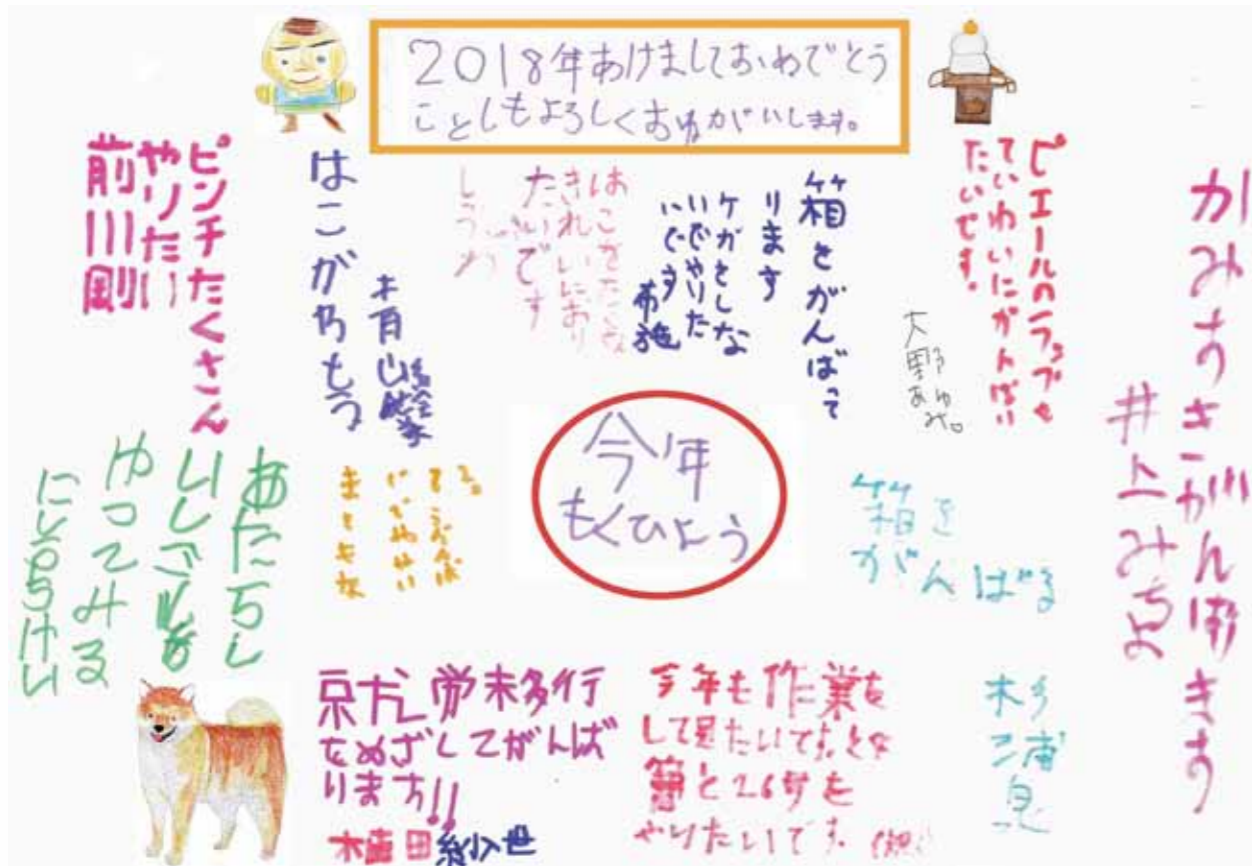 2018年あけましておめでとう
ことしもよろしくおねがいします。
かみすきがんばります
井上みちよ
ピエールのラップも
ていねいにがんばり
たいです。
大野
あゆみ。
箱をがんばって
ります
ケガをしな
いでやりた
いです
布施
はこをたくさん
きれいにおり
たいです
はこがやもう
青山
ピンチたくさん
やりたい
前川剛
今年
もくひよう
箱を
がんばる
杉浦恵
あたらし
いしごとを
やってみる
京尤労未多行
をめざしてがんば
ります!!
植田紗世
今年も作業を
して見たいです。とな
箱と26号を
やりたいです。